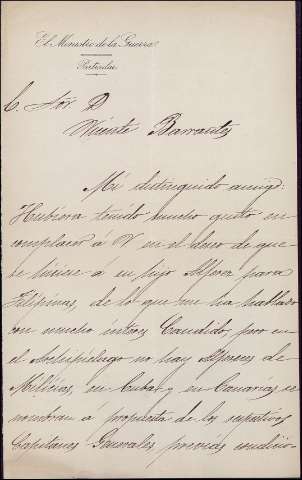 El Ministro de la Guerra
Particular
E. Sor D
Vicente Barrantes
Mi distinguido amigo:
Hubiera tenido mucho gusto en
complacer á V en el deseo de que
se hiciese á su hijo Alferez para
Filipinas, de lo que me ha hablado
con mucho interes Candido, pero en
el Archipielago no hay Alfereces de
Milicias, en Cuba y en Canarias se
nombran á propuesta de los respectivos
Capitanes Generales previas condicio-